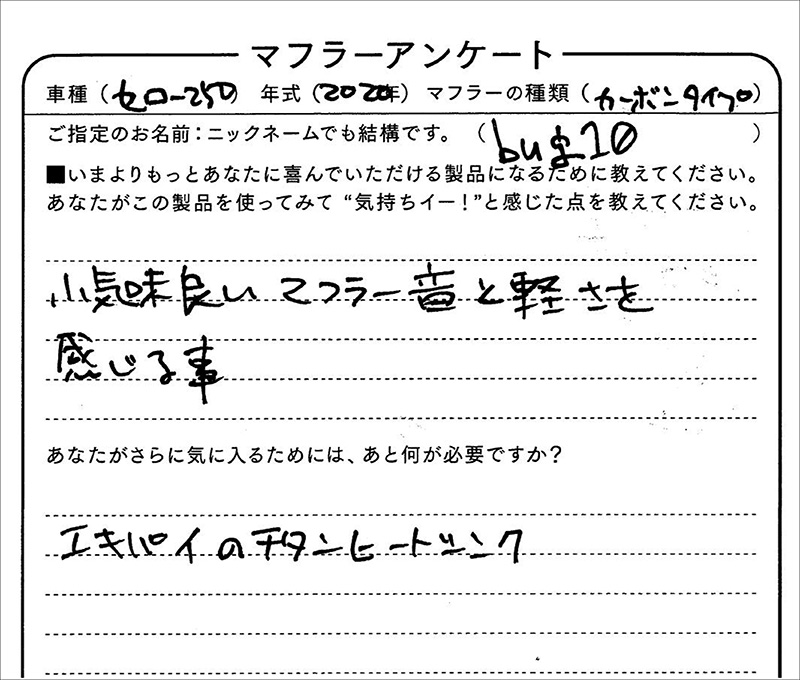 マフラーアンケート
車種（セロー250）　年式（2020年）　マフラーの種類（カーボンタイプ）
ご指定のお名前：ニックネームでも結構です。（bug10）
■いまよりもっとあなたに喜んでいただける製品になるために教えてください。
あなたがこの製品を使ってみて“気持ちイー！”と感じた点を教えてください。
小気味良いマフラー音と軽さを
感じる事
あなたがさらに気に入るためには、あと何が必要ですか？
エキパイのチタンヒートツンク